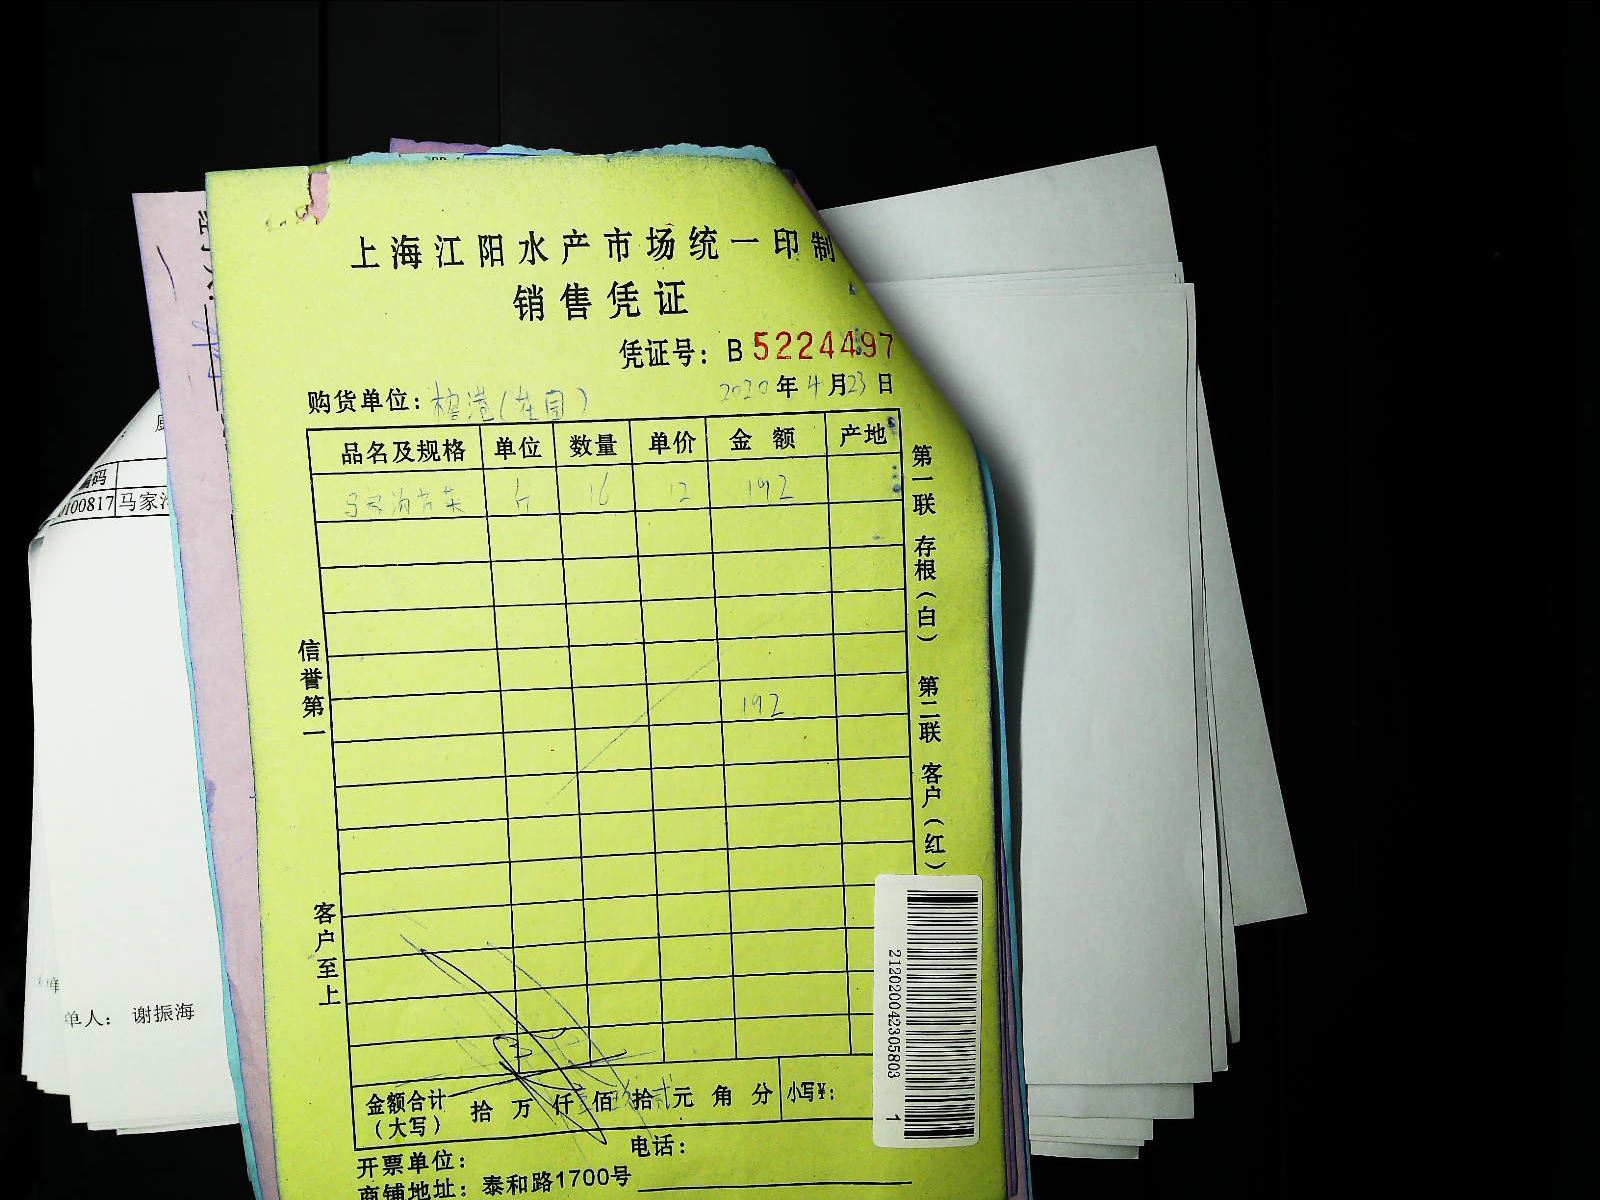 上海江阳水产市场统一印制
销售凭证
凭证号：B 5224497
购货单位： 2020年4月23日
品名及规格 单位 数量 单价 金额 产地
斤 16 12 192
192
金额合计（大写） 拾 万 仟 佰 拾 元 角 分 小写¥：
开票单位： 电话：
商铺地址：泰和路1700号
信誉第一
客户至上
第一联 存根（白） 第二联 客户（红）
212020042305803 1
编码
0100817 马家
单人： 谢振海